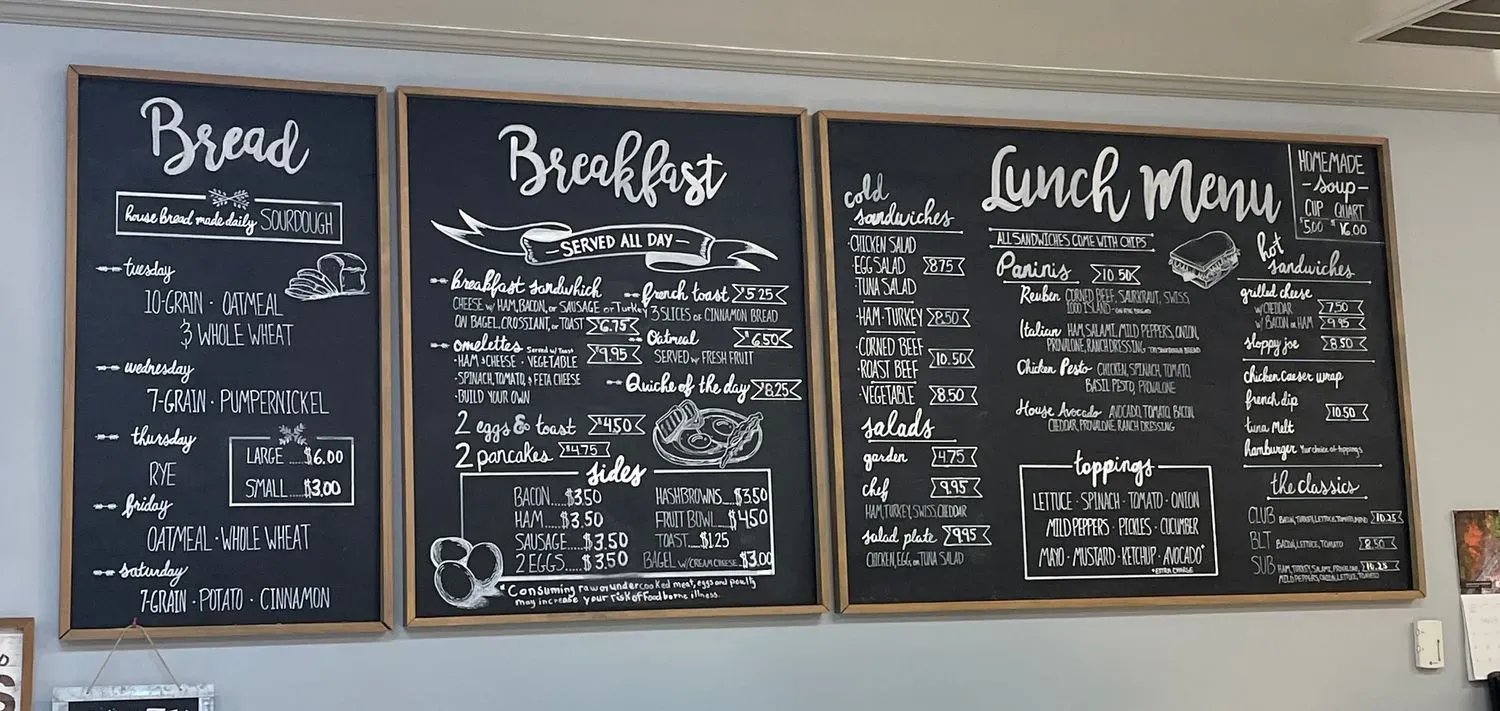 Bread
house Bread made daily SOURDOUGH
tuesday
10-GRAIN · OATMEAL
& WHOLE WHEAT
wednesday
7-GRAIN · PUMPERNICKEL
thursday
RYE
LARGE .... $6.00
SMALL .... $3.00
friday
OATMEAL · WHOLE WHEAT
saturday
7-GRAIN · POTATO · CINNAMON
Breakfast
— SERVED ALL DAY —
breakfast sandwhich
CHEESE w/ HAM, BACON, or SAUSAGE or Turkey
ON BAGEL, CROSSIANT, or TOAST $6.75
omelettes Served w/ Toast $9.95
· HAM & CHEESE · VEGETABLE
· SPINACH, TOMATO, & FETA CHEESE
· BUILD YOUR OWN
french toast $5.25
3 SLICES OF CINNAMON BREAD
Oatmeal $6.50
SERVED w/ FRESH FRUIT
Quiche of the day $8.25
2 eggs & toast $4.50
2 pancakes $4.75
sides
BACON.... $3.50
HAM.... $3.50
SAUSAGE.... $3.50
2 EGGS.... $3.50
HASHBROWNS.... $3.50
FRUIT BOWL.. $4.50
TOAST.... $1.25
BAGEL w/ CREAM CHEESE. $3.00
* Consuming raw or undercooked meat, eggs and poultry
may increase your risk of food borne illness.
Lunch Menu
HOMEMADE
- Soup -
CUP QUART
$5.00 $16.00
cold
sandwiches
· CHICKEN SALAD
· EGG SALAD 8.75
· TUNA SALAD
· HAM · TURKEY 8.50
· CORNED BEEF
· ROAST BEEF 10.50
· VEGETABLE 8.50
salads
garden 4.75
chef 9.95
HAM, TURKEY, SWISS, CHEDDAR
salad plate 9.95
CHICKEN, EGG, or TUNA SALAD
ALL SANDWICHES COME WITH CHIPS
Paninis 10.50
Reuben CORNED BEEF, SAURKRAUT, SWISS,
1000 ISLAND - ON RYE BREAD
Italian HAM, SALAMI, MILD PEPPERS, ONION,
PROVALONE, RANCH DRESSING
Chicken Pesto CHICKEN, SPINACH, TOMATO,
BASIL PESTO, PROVALONE
House Avocado AVOCADO, TOMATO, BACON
CHEDDAR, PROVALONE, RANCH DRESSING
toppings
LETTUCE · SPINACH · TOMATO · ONION
MILD PEPPERS · PICKLES · CUCUMBER
MAYO · MUSTARD · KETCHUP · AVOCADO*
*EXTRA CHARGE
hot
sandwiches
grilled cheese
w/ CHEDDAR 7.50
w/ BACON or HAM 9.95
sloppy joe 8.50
Chicken Caeser wrap
french dip
10.50
tuna Melt
hamburger Your choice of toppings
the classics
CLUB BACON, TURKEY, LETTUCE, TOMATO, 10.25
BLT BACON, LETTUCE, TOMATO 8.50
SUB HAM, TURKEY, SALAMI, PROVALONE, 10.25
MILD PEPPERS, ONION, LETTUCE, TOMATO